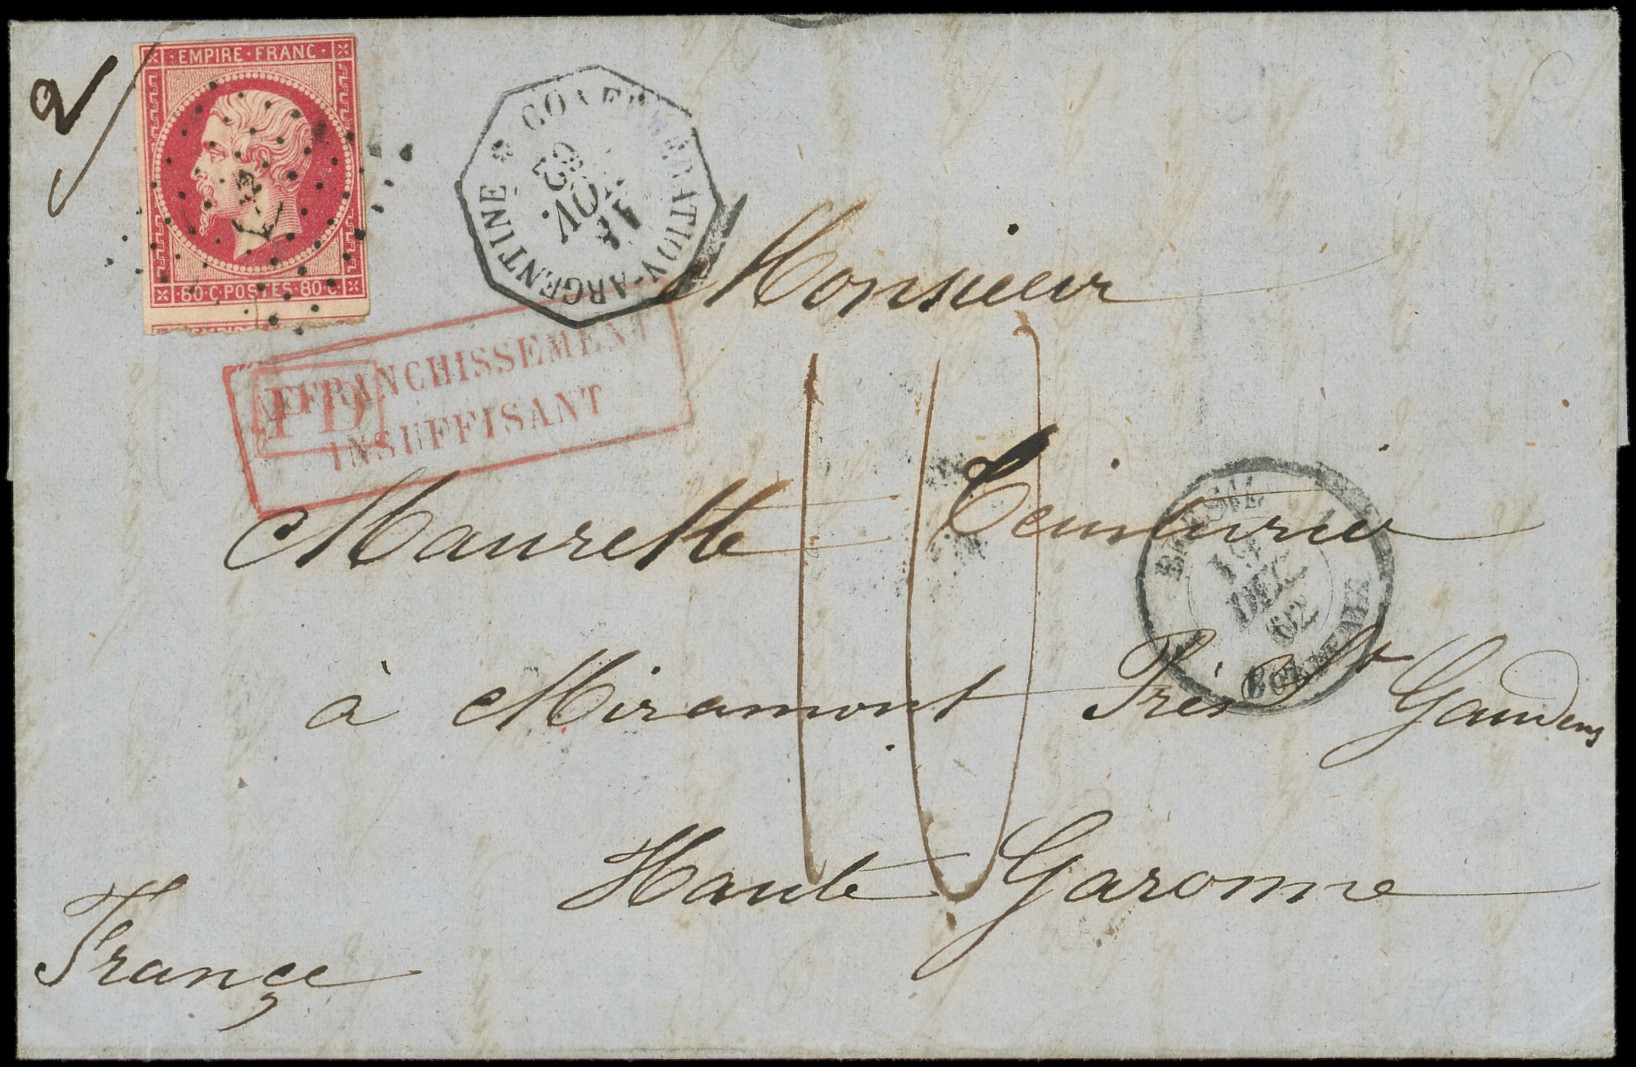 2
EMPIRE · FRANC ·
· 80 · C · POSTES · 80 · C ·
* CONFEDERATION-ARGENTINE
11
NOV.
62
AFFRANCHISSEMENT
INSUFFISANT
PD
10
Monsieur
Maurette Teinturier
BRESIL
19
DEC.
62
à Miramont Près St Gaudens
Haute Garonne
France